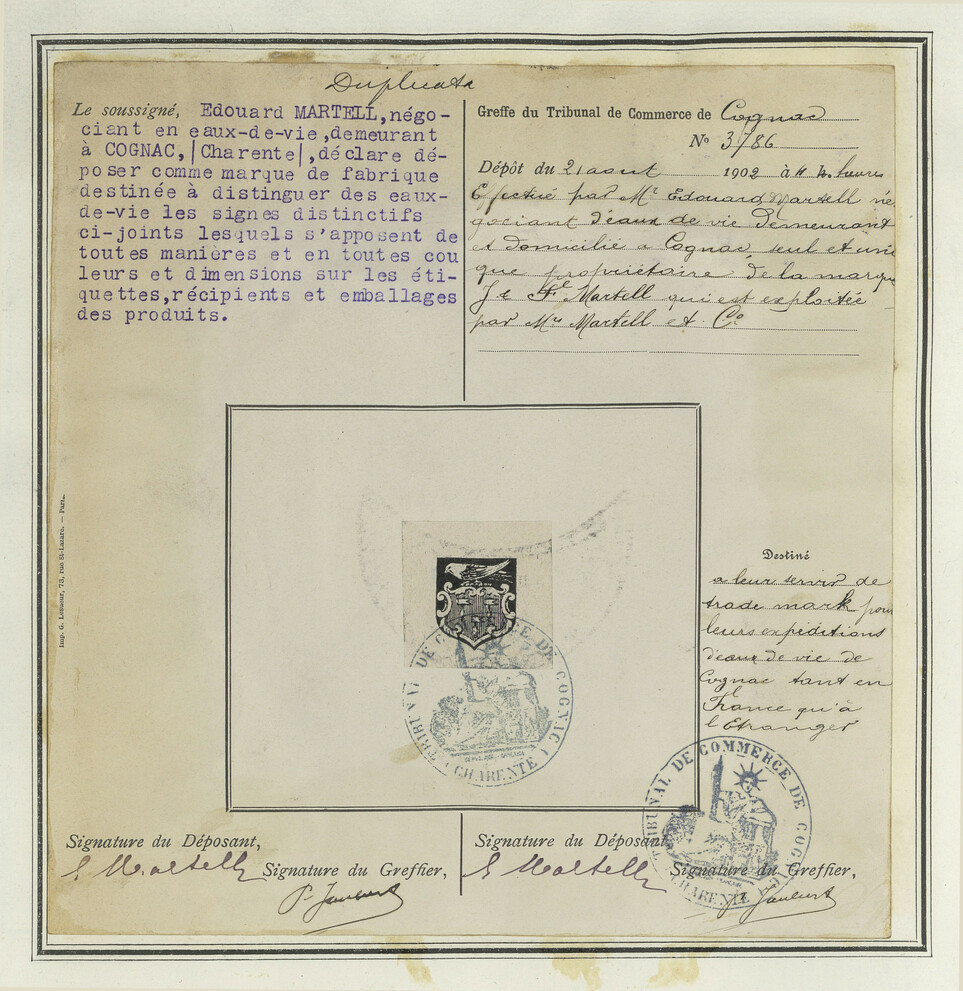 Duplicata
Le soussigné, Edouard MARTELL,négo-
ciant en eaux-de-vie,demeurant
à COGNAC,|Charente|,déclare dé-
poser comme marque de fabrique
destinée à distinguer des eaux-
de-vie les signes distinctifs
ci-joints lesquels s'apposent de
toutes manières et en toutes cou
leurs et dimensions sur les éti-
quettes,récipients et emballages
des produits.
Greffe du Tribunal de Commerce de Cognac
No 3786
Dépôt du 21 aout 1902 à 4 heures
Effectué par Mr Edouard Martell né
gociant d'eaux de vie demeurant
et domicilié a Cognac, seul et uni
que propriétaire de la marque
J & F Martell qui est exploitée
par Mrs Martell et Co
Imp. G. Lesueur, 73, rue St-Lazare. — Paris.
Destiné
a leur servir de
trade mark pour
leurs expéditions
d'eaux de vie de
Cognac tant en
France qu'à
l'Etranger
TRIBUNAL DE COMMERCE DE COGNAC
(CHARENTE)
TRIBUNAL DE COMMERCE DE COGNAC
(CHARENTE)
Signature du Déposant,
E Martell
Signature du Greffier,
P. Jaubert
Signature du Déposant,
E Martell
Signature du Greffier,
P. Jaubert